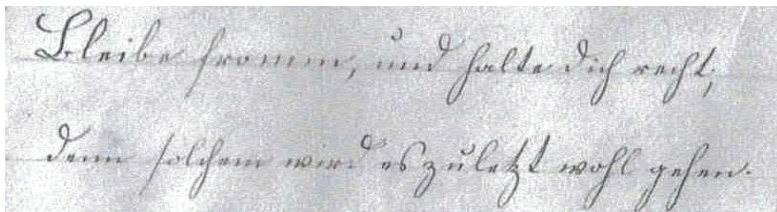 Bleibe fromm, und halte dich recht;
denn solchem wird es zuletzt wohl gehen.